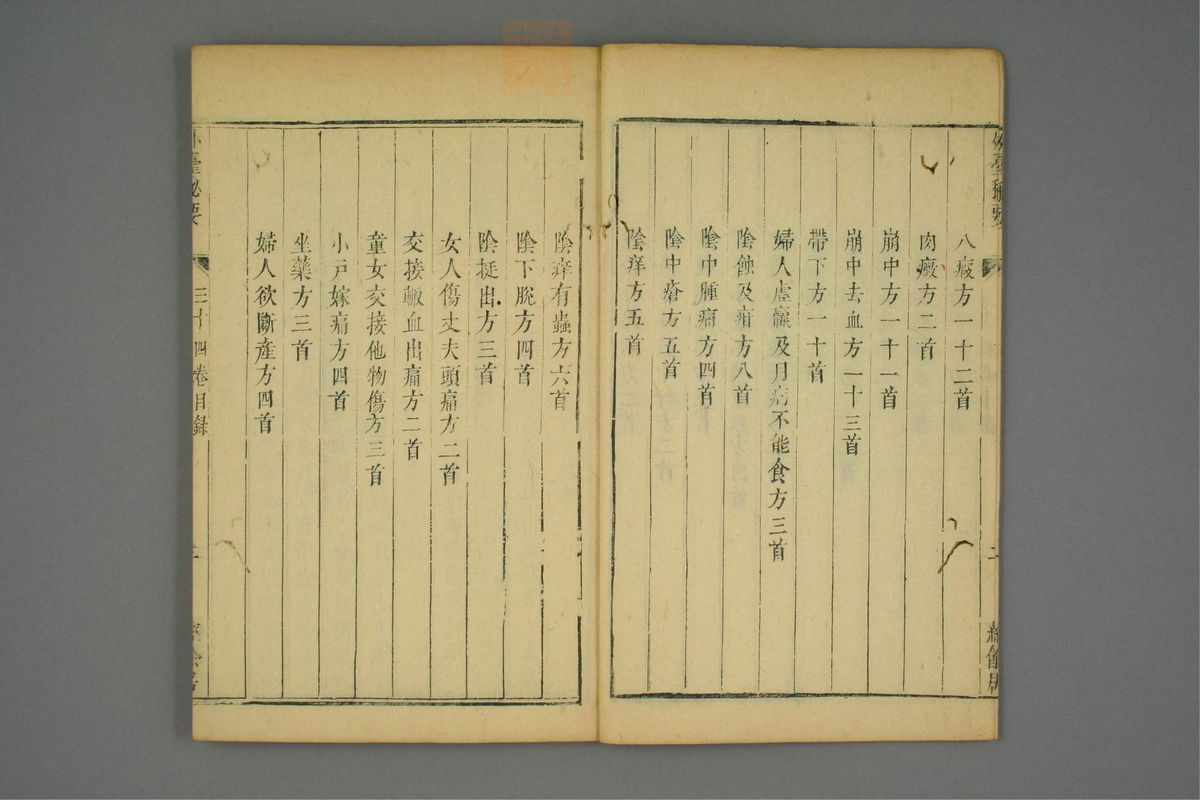 外臺秘要
八瘕方一十二首
肉癥方二首
崩中方一十一首
崩中去血方一十三首
帶下方一十首
婦人虛羸及月病不能食方三首
陰蝕及疳方八首
陰中腫痛方四首
陰中瘡方五首
陰痒方五首
陰痒有蟲方六首
陰下脫方四首
陰挺出方三首
女人傷丈夫頭痛方二首
交接輙血出痛方二首
童女交接他物傷方三首
小戶嫁痛方四首
坐藥方三首
婦人欲斷產方四首
外臺秘要 三十四卷目錄